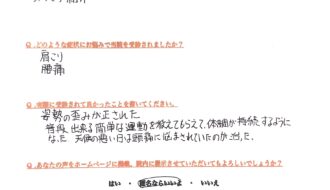 Q.どのような症状にお悩みで当院を受診されましたか？
肩こり
腰痛
Q.実際に受診されて良かったことを書いてください。
姿勢の歪みが正された。
普段、出来る簡単な運動を教えてもらえて、体調が持続するように
なった。天候の悪い日は頭痛に悩まされていたのが治った。
Q.あなたの声をホームページに掲載、院内に掲示させていただいてもよろしいでしょうか？
はい ・ 匿名ならいいよ ・ いいえ